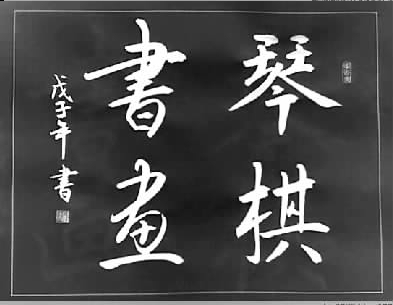 琴棋
書画
戊子年書